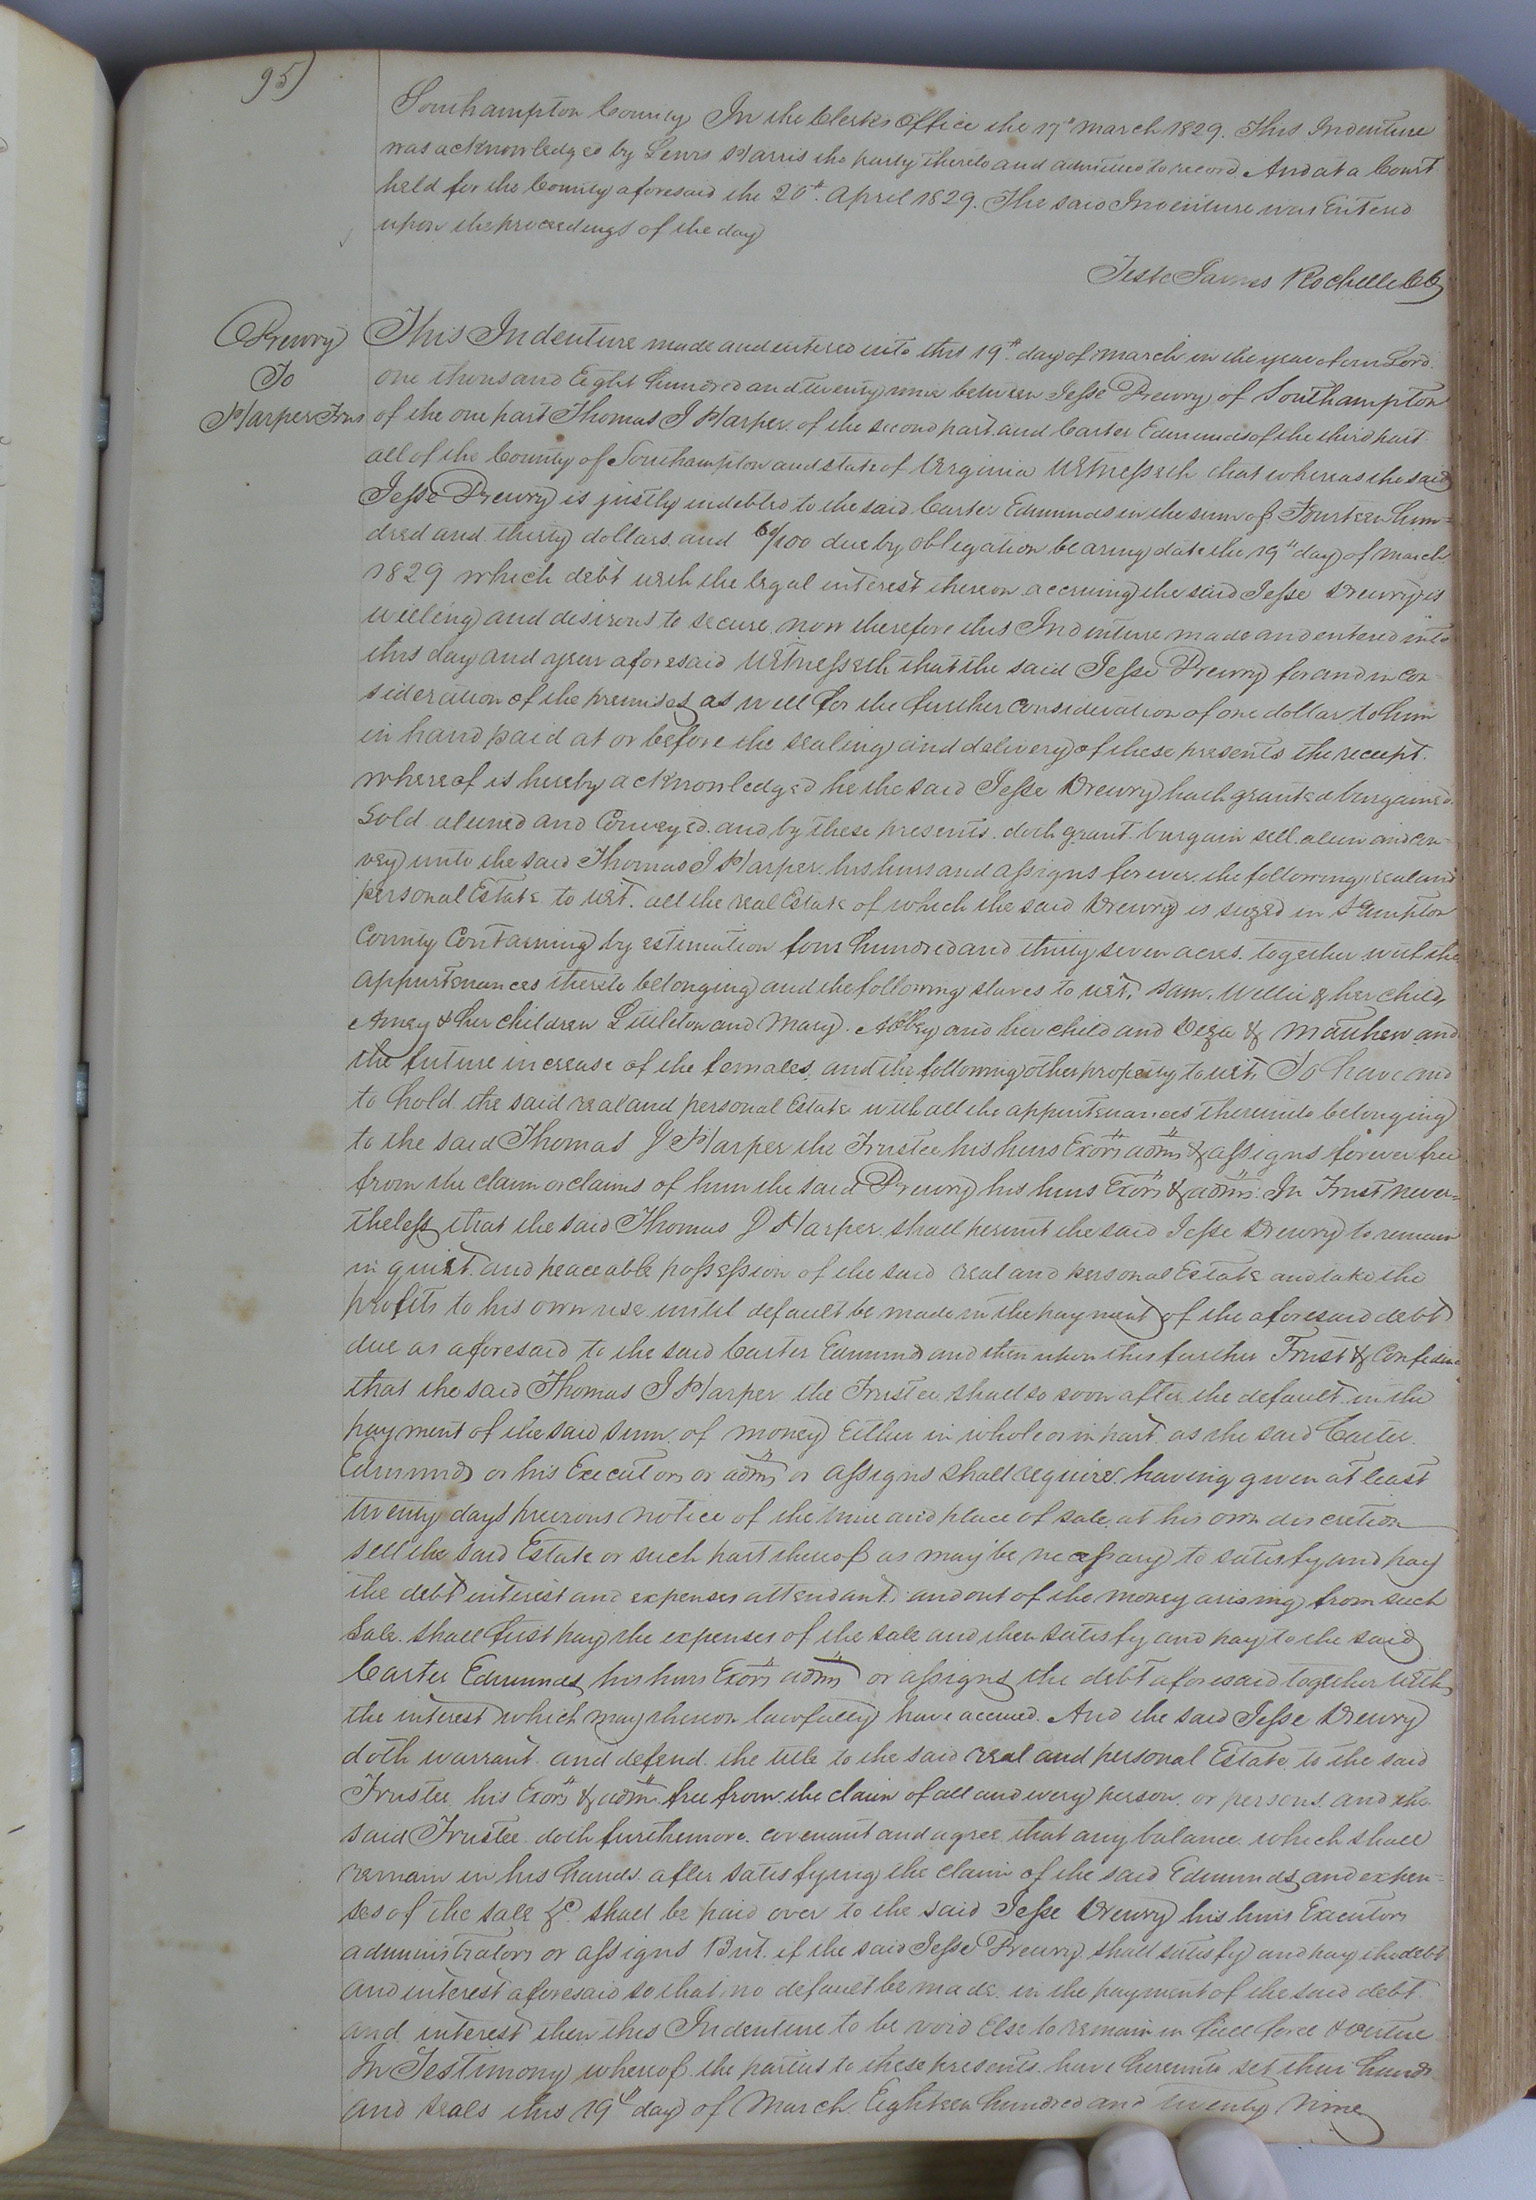 95)
Southampton County In the Clerks Office the 17th March 1829. This Indenture
was acknowledged by Lewis Harris the party thereto and admitted to record And at a Court
held for the County aforesaid the 20th April 1829. The said Indenture was Entered
upon the proceedings of the day
Teste James Rochelle CC
Drewry
To
Harper Trus
This Indenture made and entered into this 19th day of March in the year of our Lord
one thousand Eight hundred and twenty nine between Jesse Drewry of Southampton
of the one part Thomas J Harper of the second part and Carter Edmunds of the third part
all of the County of Southampton and state of Virginia Witnesseth that whereas the said
Jesse Drewry is justly indebted to the said Carter Edmunds in the sum of Fourteen hun=
dred and thirty dollars and /100 due by obligation bearing date the 19th day of March
1829 which debt with the legal interest thereon accruing the said Jesse Drewry is
willing and desirous to secure now therefore this Indenture made and entered into
this day and year aforesaid Witnesseth that the said Jesse Drewry for and in con-
sideration of the premises as well for the further consideration of one dollar to him
in hand paid at or before the sealing and delivery of these presents the receipt
whereof is hereby acknowledged he the said Jesse Drewry hath granted bargained
Sold aliened and Conveyed and by these presents doth grant bargain sell alien and con-
vey unto the said Thomas J Harper his heirs and assigns forever the following real and
personal Estate to wit. all the real Estate of which the said Drewry is seized in S Hampton
County Containing by estimation four hundred and thirty seven acres together with the
appurtenances thereto belonging and the following slaves to wit, Sam, & her child,
Amey & her children Littleton and Mary. Abbey and her child and & Mathew and
the future increase of the females, and the following other property to wit, To have and
to hold the said real and personal Estate with all the appurtenances thereunto belonging
to the said Thomas J Harper the Trustee his heirs Exors adms & assigns forever free
from the claim or claims of him the said Drewry his heirs Exors & adms. In Trust never=
theless that the said Thomas J Harper shall permit the said Jesse Drewry to remain
in quiet and peaceable possession of the said real and personal Estate and take the
profits to his own use until default be made in the payment of the aforesaid debt
due as aforesaid to the said Carter Edmunds and then upon this further Trust & Confidence
that the said Thomas J Harper the Trustee shall so soon after the default in the
payment of the said sum of money Either in whole or in part as the said Carter
Edmunds or his Executors or adms or assigns shall require having given at least
twenty days previous notice of the time and place of sale at his own discretion
sell the said Estate or such part thereof as may be necessary to satisfy and pay
the debt interest and expenses attendant and out of the money arising from such
Sale shall first pay the expenses of the sale and then satisfy and pay to the said
Carter Edmunds his heirs Exors adms or assigns the debt aforesaid together with
the interest which may thereon lawfully have accrued. And the said Jesse Drewry
doth warrant and defend the title to the said real and personal Estate to the said
Trustee his Exors & adms free from the claim of all and every person or persons and the
said Trustee doth furthemore covenant and agree that any balance which shall
remain in his hands after satisfying the claim of the said Edmunds and expen-
ses of the sale &c shall be paid over to the said Jesse Drewry his heirs Executors
administrators or assigns But if the said Jesse Drewry shall satisfy and pay the debt
and interest aforesaid so that no default be made in the payment of the said debt
and interest then this Indenture to be void Else to remain in full force & virtue
In Testimony whereof the parties to these presents have hereunto set their hands
and seals this 19th day of March Eighteen hundred and twenty Nine